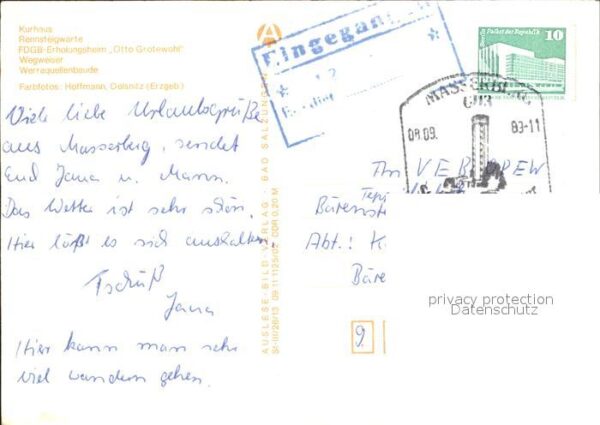 Kurhaus
Rennsteigwarte
FDGB-Erholungsheim „Otto Grotewohl"
Wegweiser
Werraquellenbaude
Farbfotos: Hoffmann, Oelsnitz (Erzgeb.)
Viele liebe Urlaubsgrüße
aus Masserberg, sendet
Euch Jana u. Mann.
Das Wetter ist sehr schön.
Hier läßt es sich aushalten.
Tschüß
Jana
Hier kann man sehr
viel wandern gehen.
AUSLESE-BILD-VERLAG · BAD SALZUNGEN
DDR 0,20 M
Eingegangen
Palast der Republik
10
MASSERBERG
6113
09.09. 83-11
An VEB
Bärenst
Abt.: K
Bäre
9
privacy protection
Datenschutz